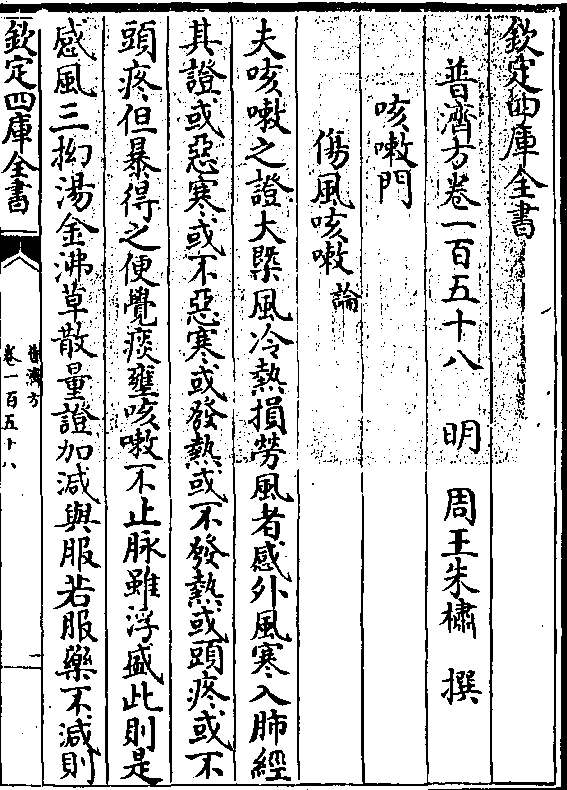 欽定四庫全書
普濟方卷一百五十八 明 周王朱橚 撰
咳嗽門
傷風咳嗽論
夫咳嗽之證大槩風冷熱損勞風者感外風寒入肺經
其證或惡寒或不惡寒或發熱或不發熱或頭疼或不
頭疼但暴得之便覺痰壅咳嗽不止脉雖浮盛此則是
感風三拗湯金沸草散量證加減與服若服藥不減則
欽定四庫全書
普濟方
卷一百五十八